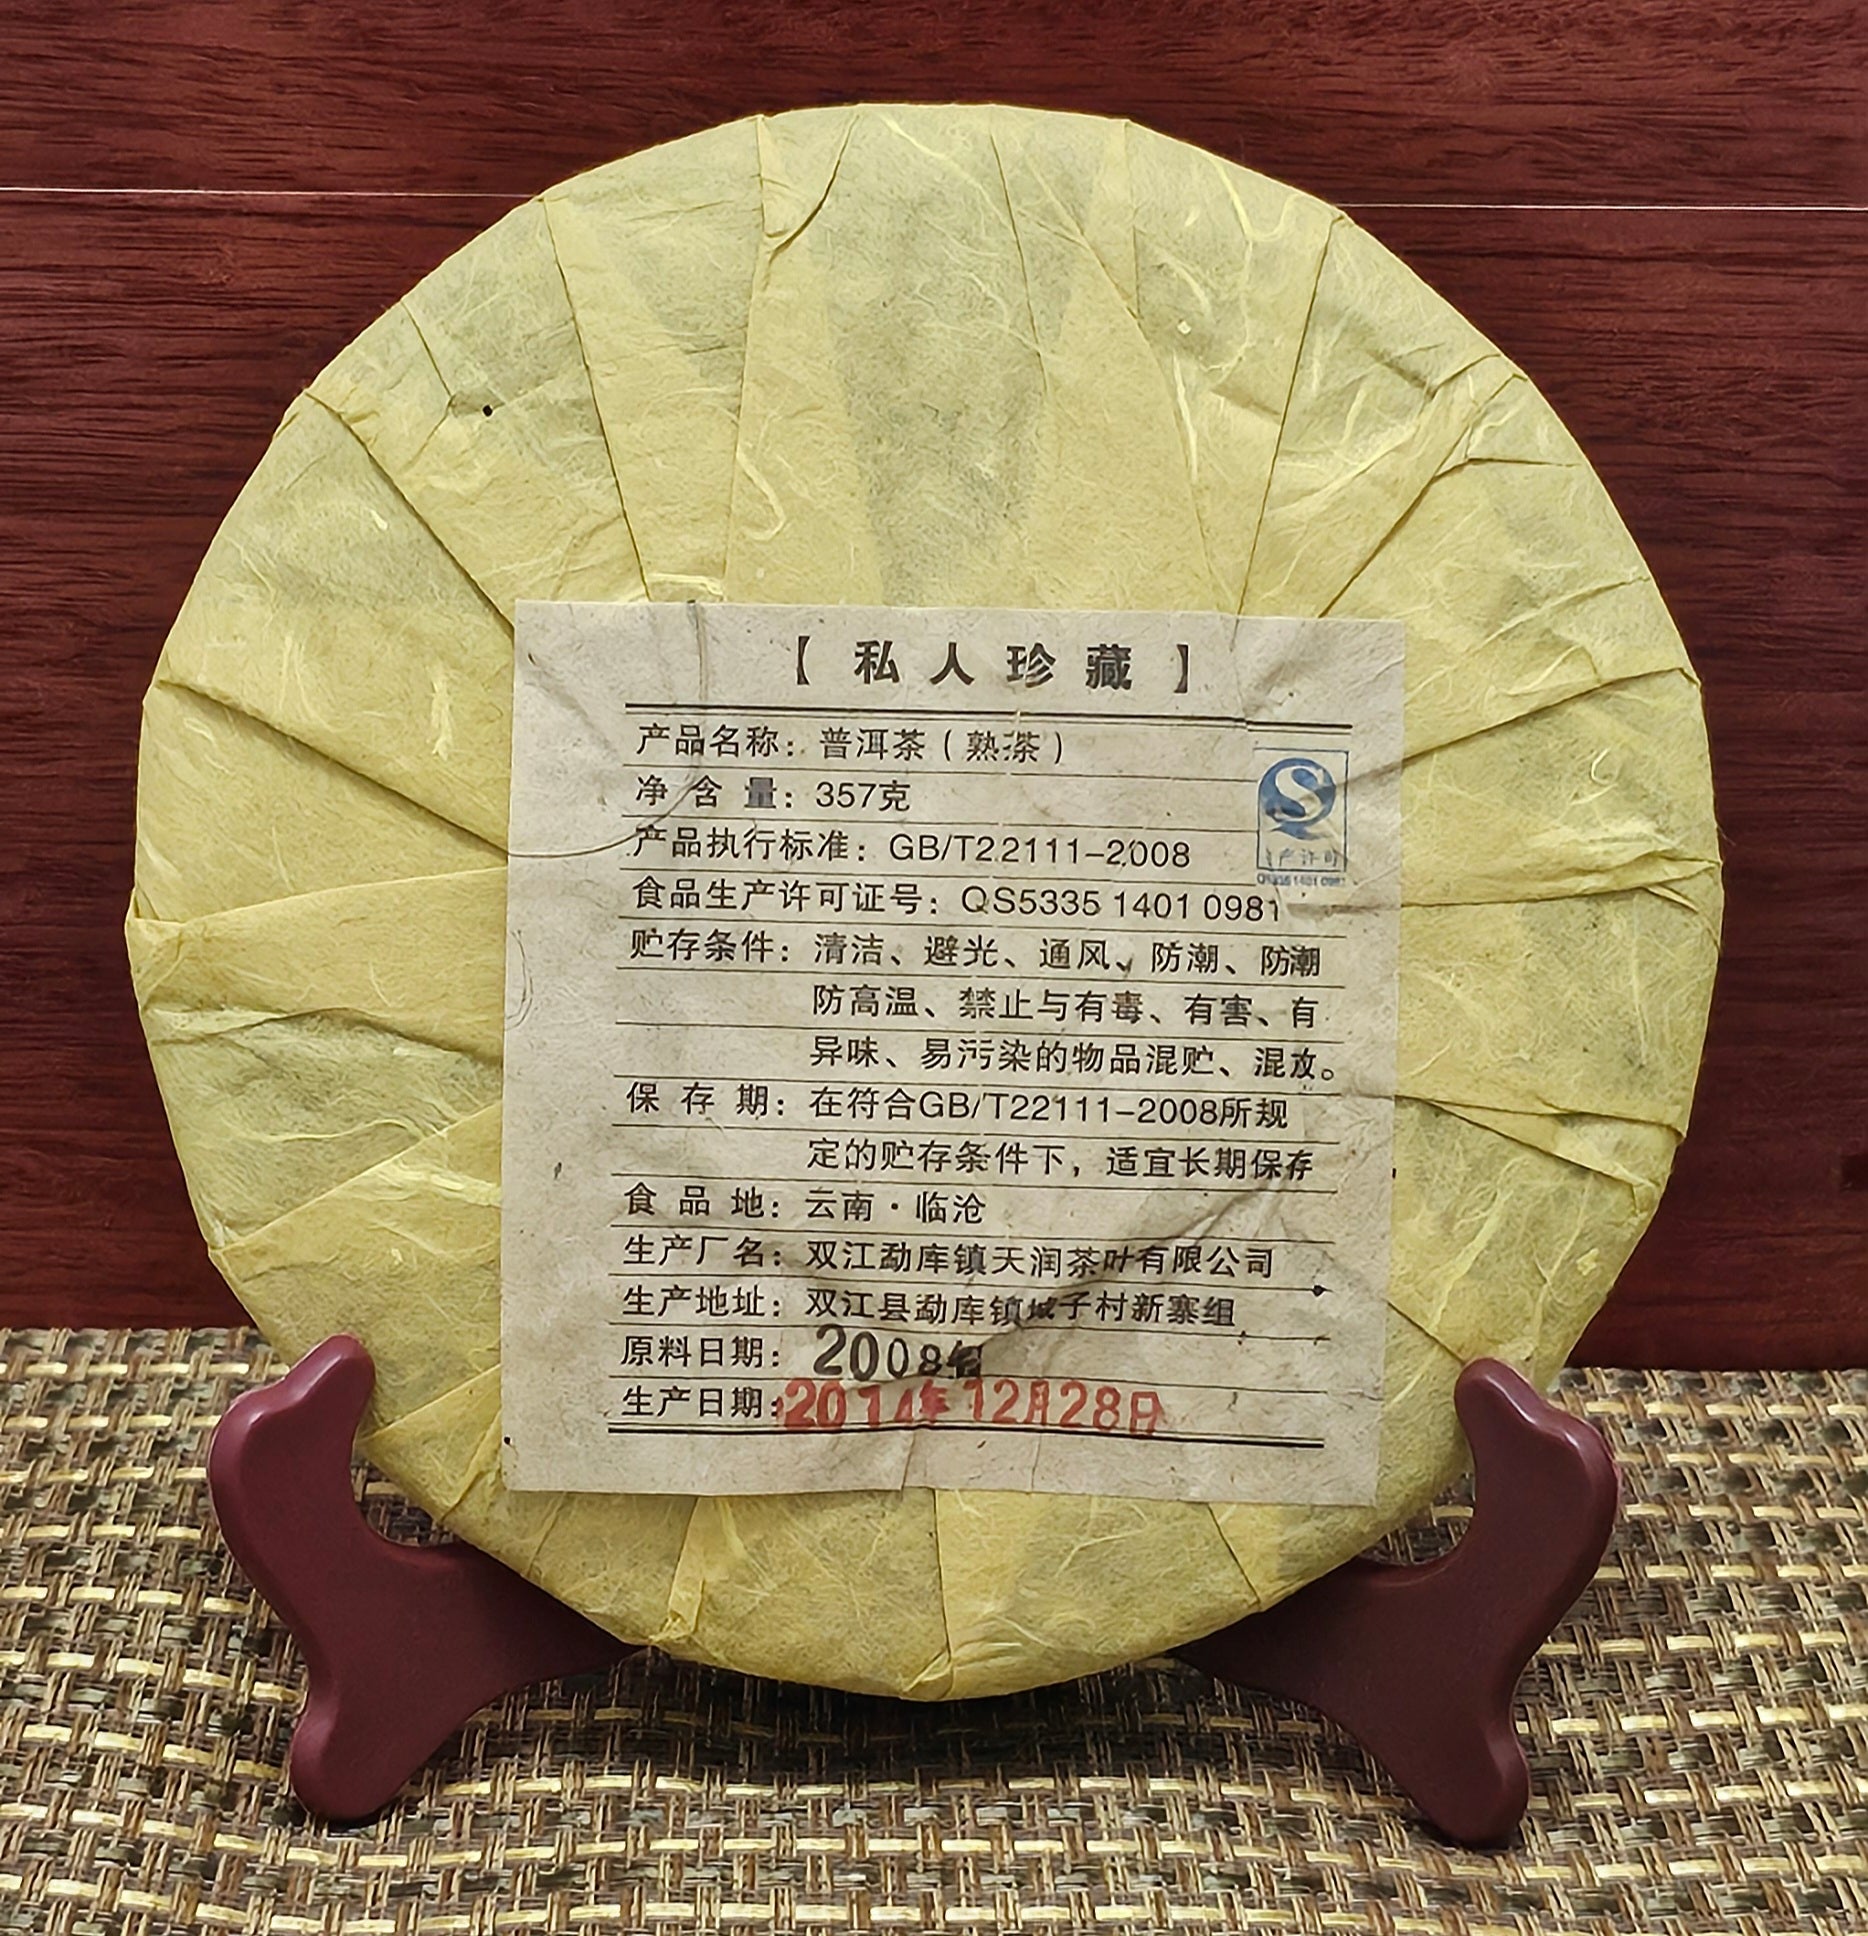 【私人珍藏】
产品名称：普洱茶（熟茶）
净含量：357克
产品执行标准：GB/T22111-2008
食品生产许可证号：QS5335 1401 0981
贮存条件：清洁、避光、通风、防潮、防潮
防高温、禁止与有毒、有害、有
异味、易污染的物品混贮、混放。
保存期：在符合GB/T22111-2008所规
定的贮存条件下，适宜长期保存
食品地：云南·临沧
生产厂名：双江勐库镇天润茶叶有限公司
生产地址：双江县勐库镇城子村新寨组
原料日期：2008年
生产日期：2014年12月28日
产许可
QS5335 1401 0981